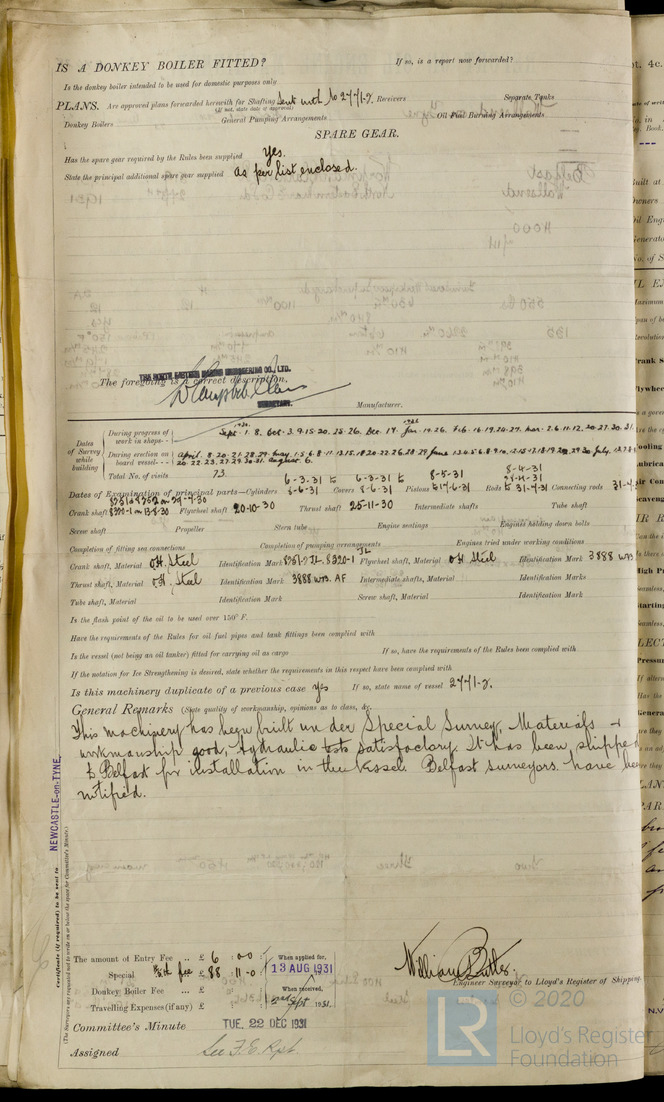 IS A DONKEY BOILER FITTED? If so, is a report now forwarded?
Is the donkey boiler intended to be used for domestic purposes only
PLANS. Are approved plans forwarded herewith for Shafting Sent with No 2771-2 Receivers Separate Tanks
(If not, state date of approval)
Donkey Boilers General Pumping Arrangements Oil Fuel Burning Arrangements
SPARE GEAR.
Has the spare gear required by the Rules been supplied Yes.
State the principal additional spare gear supplied as per list enclosed.
THE NORTH EASTERN MARINE ENGINEERING CO., LTD.
The foregoing is a correct description,
SECRETARY. Manufacturer.
Dates of Survey while building
During progress of work in shops - - 1930. Sept. 1. 8. Oct. 3. 9. 15. 20. 25. 26. Dec. 19. 1931 Jan. 19. 26. Feb. 16. 19. 20. 27. Mar. 2. 6. 11. 12. 20. 27. 30. 31.
During erection on board vessel - - - April. 8. 20. 21. 28. 29. May. 1. 5. 6. 8. 11. 13. 15. 18. 20. 22. 26. 28. 29. June
20. 22. 23. 27. 29. 30. 31. August. 6.
Total No. of visits 73.
Dates of Examination of principal parts—Cylinders 6-3-31 to 8-6-31 Covers 6-3-31 to 8-6-31 Pistons 8-5-31 to 17-6-31 Rods 8-4-31 Connecting rods
Crank shaft Flywheel shaft 20-10-30 Thrust shaft 25-11-30 Intermediate shafts Tube shaft
Screw shaft Propeller Stern tube Engine seatings Engines holding down bolts
Completion of fitting sea connections Completion of pumping arrangements Engines tried under working conditions
Crank shaft, Material O.H. Steel Identification Mark 8251-2 JL. 8320-1 JL Flywheel shaft, Material O.H Steel Identification Mark 3888 WB
Thrust shaft, Material O.H. Steel Identification Mark 3888 WB. AF Intermediate shafts, Material Identification Marks
Tube shaft, Material Identification Mark Screw shaft, Material Identification Mark
Is the flash point of the oil to be used over 150° F.
Have the requirements of the Rules for oil fuel pipes and tank fittings been complied with
Is the vessel (not being an oil tanker) fitted for carrying oil as cargo If so, have the requirements of the Rules been complied with
If the notation for Ice Strengthening is desired, state whether the requirements in this respect have been complied with
Is this machinery duplicate of a previous case yes If so, state name of vessel 2771-2.
General Remarks (State quality of workmanship, opinions as to class, &c.
This machinery has been built under Special Survey. Materials +
workmanship good, hydraulic tests satisfactory. It has been shipped
to Belfast for installation in the vessel. Belfast surveyors have been
notified.
NEWCASTLE-on-TYNE.
Certificate (if required) to be sent to
(The Surveyors are requested not to write on or below the space for Committee's Minute.)
The amount of Entry Fee .. £ 6 : 0.0 : When applied for,
Special fee £ 88 : 11-0 : 13 AUG 1931
Donkey Boiler Fee ... £ : : When received,
Travelling Expenses (if any) £ : : 2nd Sept 1931.
William Butler.
Engineer Surveyor to Lloyd's Register of Shipping.
Committee's Minute TUE. 22 DEC 1931
Assigned See F.E. Rpt.
© 2020
LR Lloyd's Register
Foundation